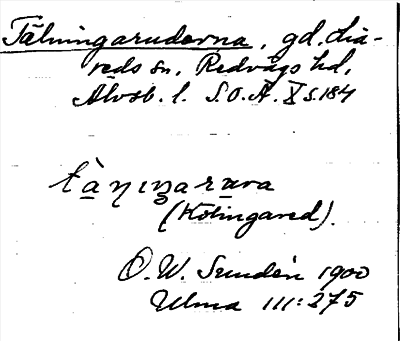 Tälningaruderna, gd, Lia-
reds sn, Redvägs hd,
Älvsb. l. S.O.Ä. X s. 184
tàṉıngarura
(Kölingared).
O. W. Sundén 1900
Ulma 111:275